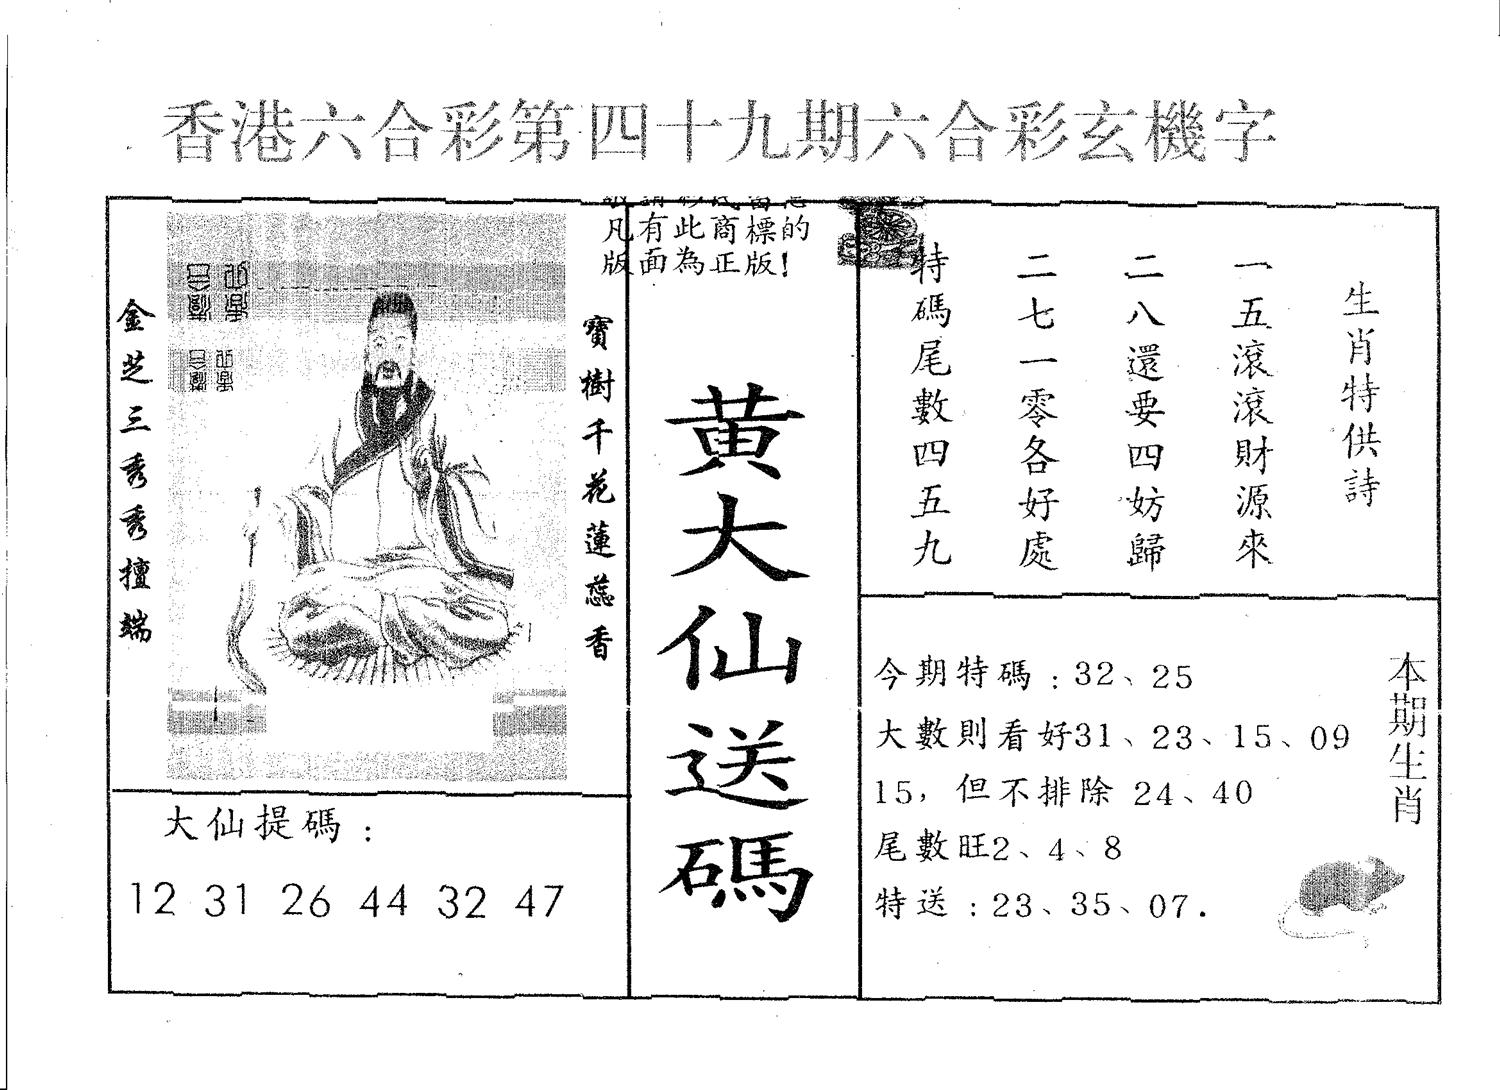 香港六合彩第四十九期六合彩玄機字
金芝三秀秀擅端
寶樹千花蓮蕊香
凡有此商標的
版面為正版!
黃大仙送碼
生肖特供詩
一五滾滾財源來
二八還要四妨歸
二七一零各好處
特碼尾數四五九
大仙提碼：
12 31 26 44 32 47
今期特碼：32、25
大數則看好31、23、15、09
15，但不排除 24、40
尾數旺2、4、8
特送：23、35、07.
本期生肖